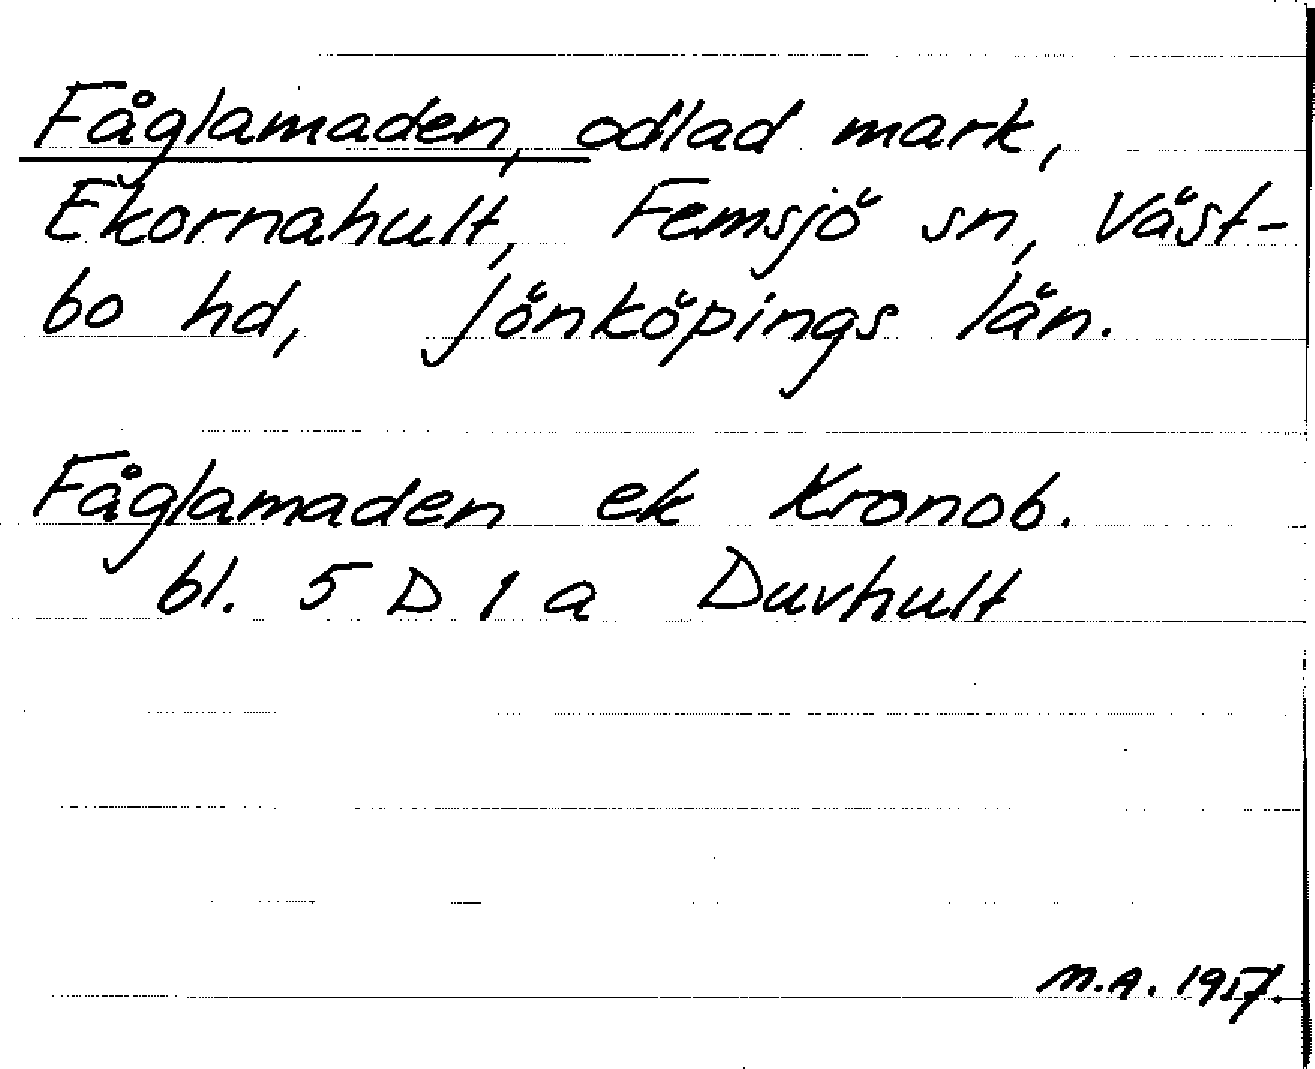 Fåglamaden, odlad mark,
Ekornahult, Femsjö sn, Väst-
bo hd, Jönköpings län.
Fåglamaden ek Kronob.
bl. 5 D 1 a Duvhult
M.A. 1957.